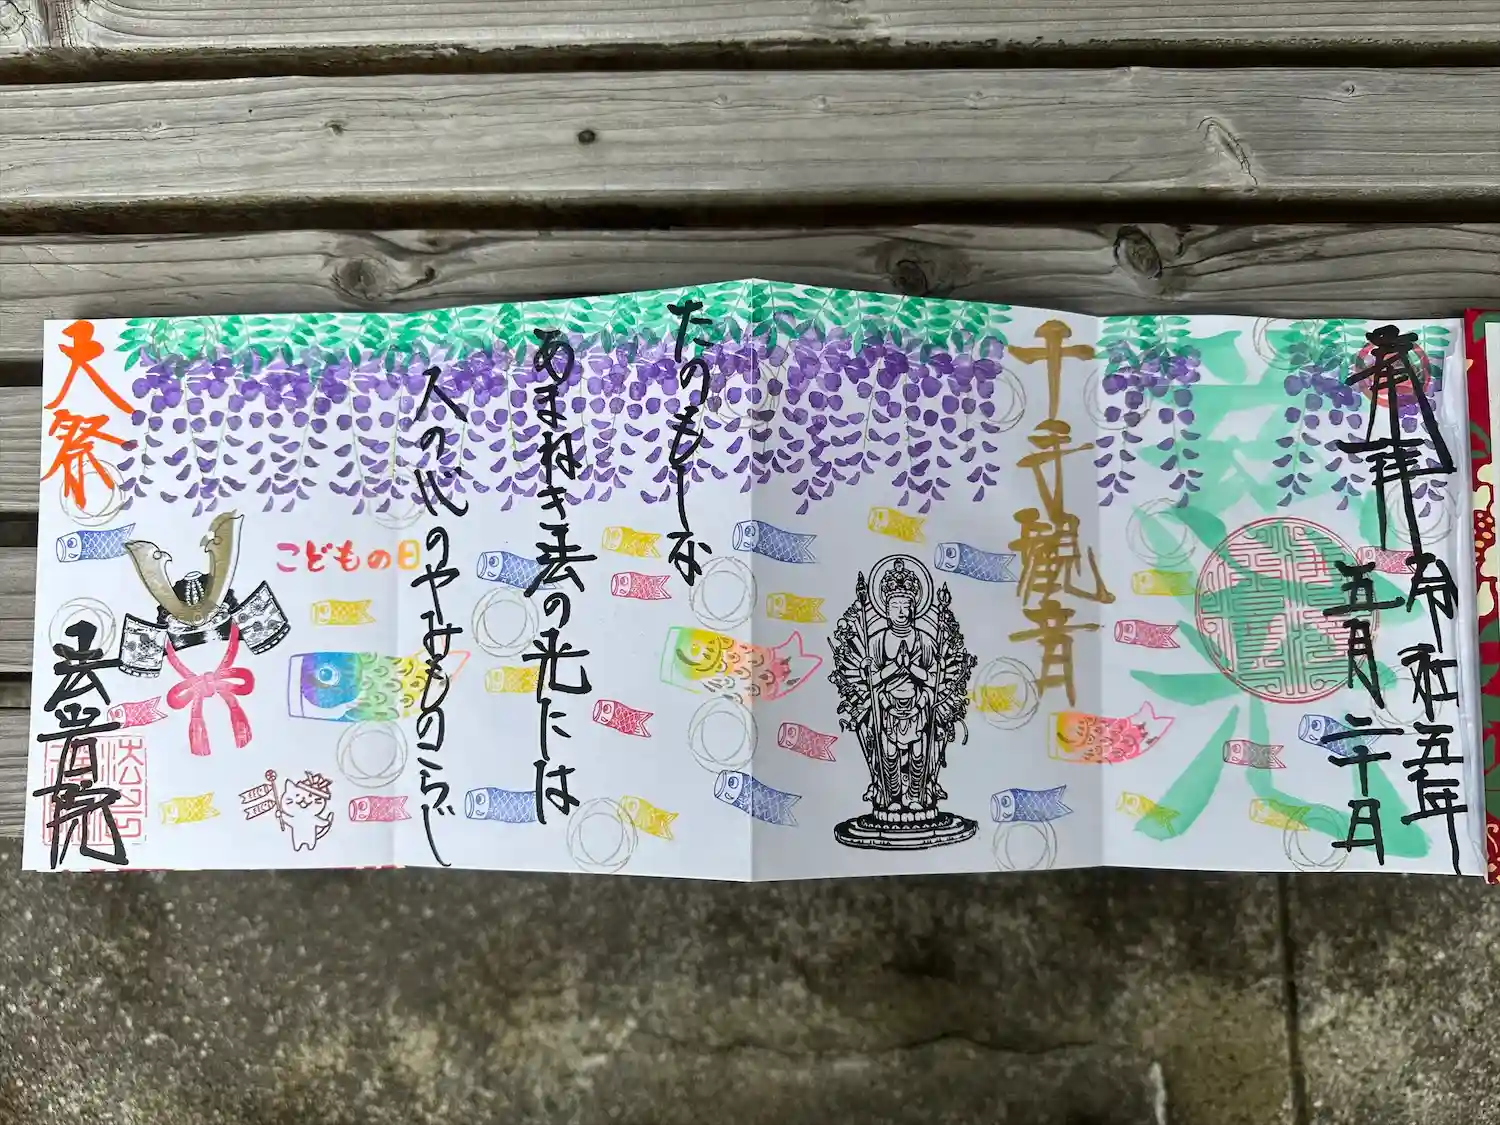 奉拝
令和五年
五月二十日
千手觀音
たのもしな
あまねき法の光には
人の心のやみものこらじ
こどもの日
大祭
法音院